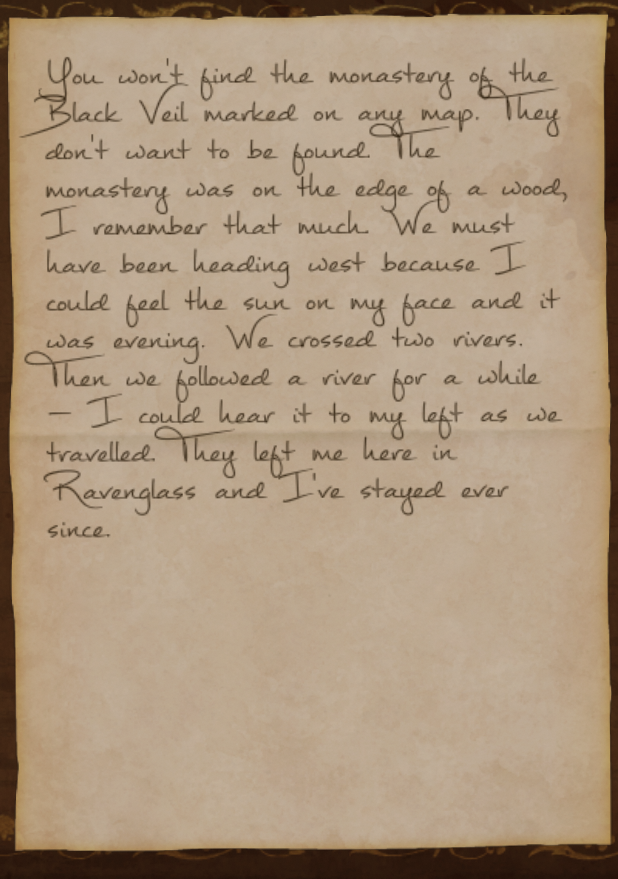 You won't find the monastery of the
Black Veil marked on any map. They
don't want to be found. The
monastery was on the edge of a wood,
I remember that much. We must
have been heading west because I
could feel the sun on my face and it
was evening. We crossed two rivers.
Then we followed a river for a while
– I could hear it to my left as we
travelled. They left me here in
Ravenglass and I've stayed ever
since.